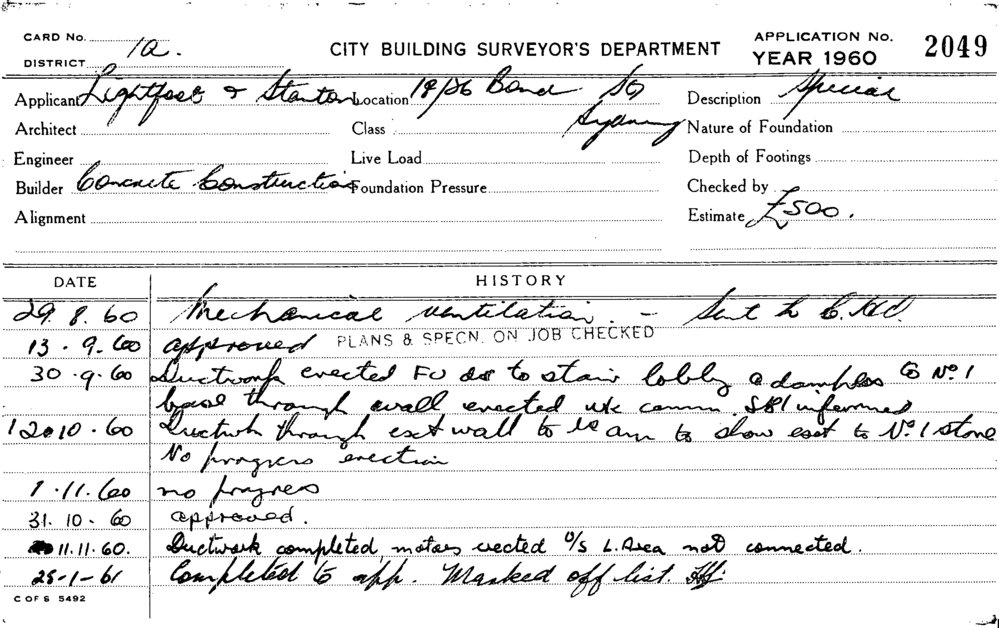 CARD No.
CITY BUILDING SURVEYOR'S DEPARTMENT
APPLICATION No.
2049
DISTRICT 1a.
YEAR 1960
Applicant Lightfoot & Stanton Location 18/26 Bond St Description Special
Sydney
Architect Class Nature of Foundation
Engineer Live Load Depth of Footings
Builder Concrete Construction Foundation Pressure Checked by
Alignment Estimate £500.
DATE HISTORY
29.8.60 Mechanical ventilation. - Sent to
13.9.60 approved PLANS & SPECN. ON JOB CHECKED
30.9.60 Ductwork erected to stair lobby to No 1
through wall erected informed
12.10.60 through wall to to show to No 1 store
No progress erection
1.11.60 no progress
31.10.60 approved.
11.11.60. Ductwork completed, motors erected O/S L. Area not connected.
25-1-61 Completed to app. Marked off list.
C OF S 5492